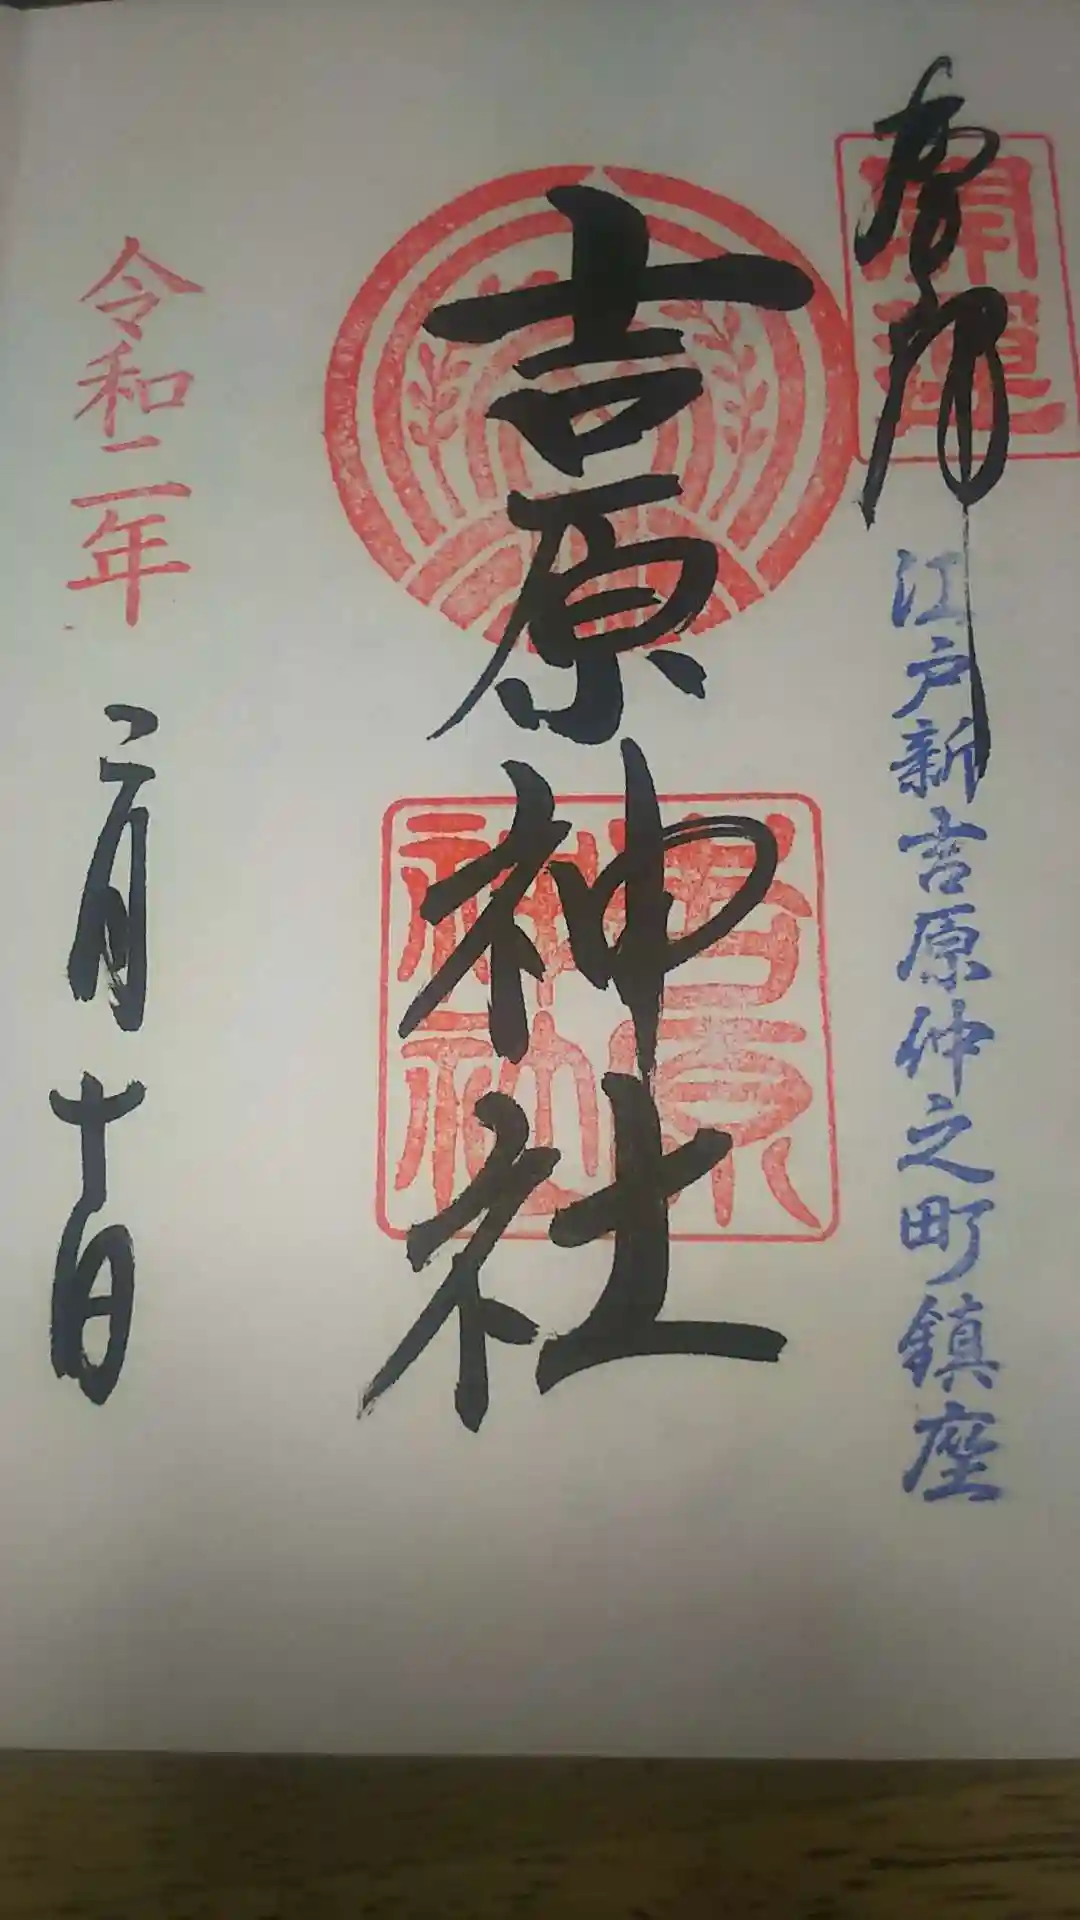 奉拝
開運
江戸新吉原仲之町鎮座
吉原神社
吉原
神社
令和二年
二月十日